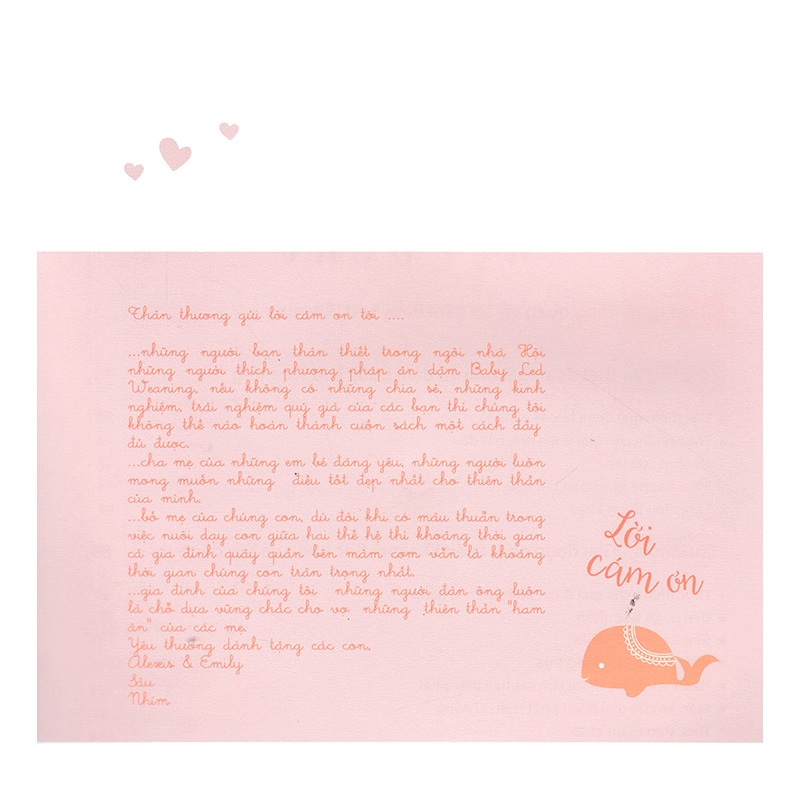 Thân thương gửi lời cám ơn tới ....
...những người bạn thân thiết trong ngôi nhà Hội
những người thích phương pháp ăn dặm Baby Led
Weaning, nếu không có những chia sẻ, những kinh
nghiệm, trải nghiệm quý giá của các bạn thì chúng tôi
không thể nào hoàn thành cuốn sách một cách đầy
đủ được.
...cha mẹ của những em bé đáng yêu, những người luôn
mong muốn những điều tốt đẹp nhất cho thiên thần
của mình.
...bố mẹ của chúng con, dù đôi khi có mâu thuẫn trong
việc nuôi dạy con giữa hai thế hệ thì khoảng thời gian
cả gia đình quây quần bên mâm cơm vẫn là khoảng
thời gian chúng con trân trọng nhất.
...gia đình của chúng tôi những người đàn ông luôn
là chỗ dựa vững chắc cho vợ những thiên thần "ham
ăn" của các mẹ.
Yêu thương dành tặng các con,
Alexis & Emily
Sâu
Nhím
Lời
cám ơn